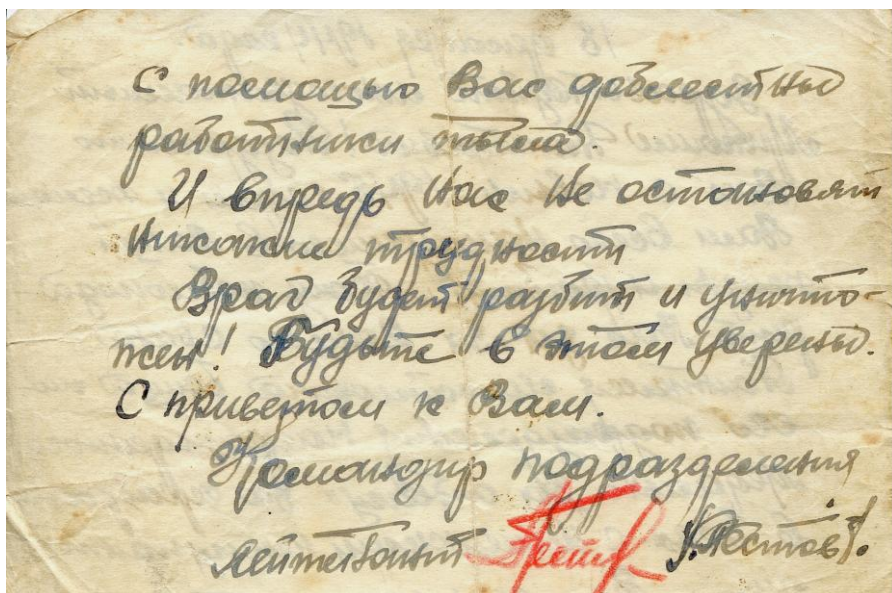 С помощью Вас доблестные
работники тыла.
И впредь нас не остановят
никакие трудности
Враг будет разбит и уничто-
жен! Будьте в этом уверены.
С приветом к Вам.
Командир подразделения
Лейтенант